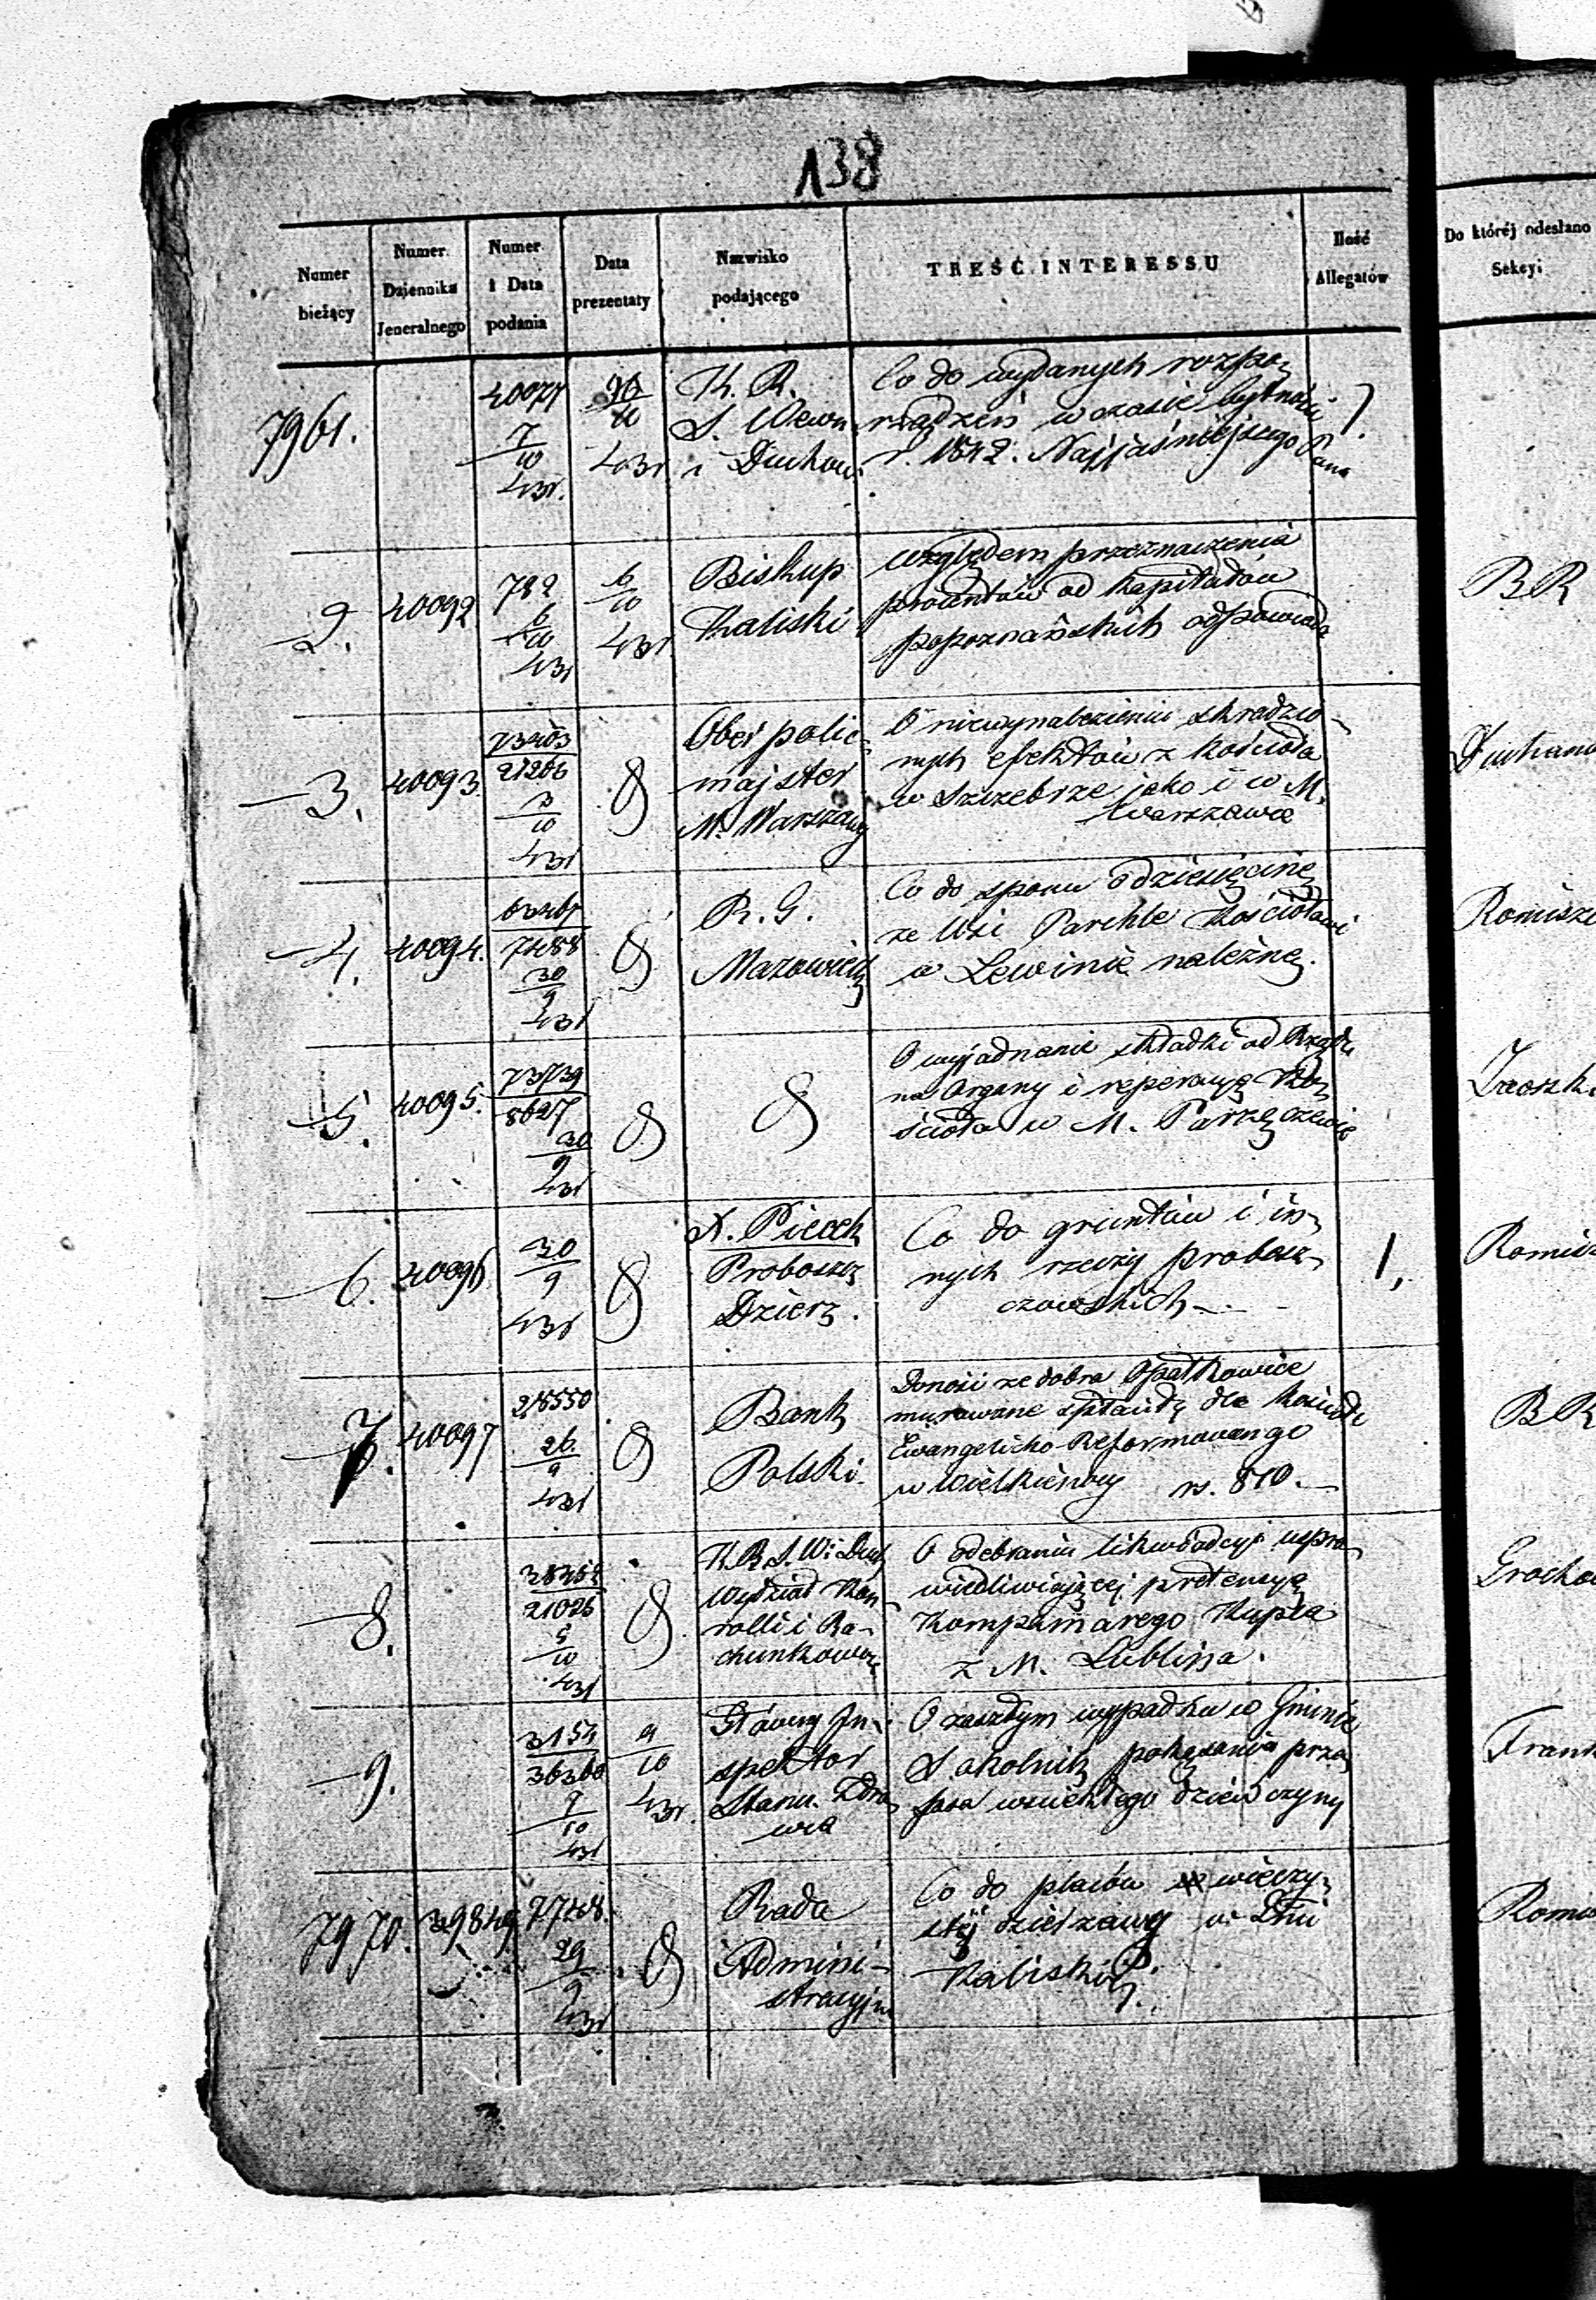 138
Numer bieżący
Numer Dziennika Jeneralnego
Numer i Data podania
Data prezentaty
Nazwisko podającego
TREŚĆ INTERESSU
Ilość Allegatów
Do któréj odesłano Sekcyi
7961.
7/10
K. R.
S. Wewn.
i Duchow.
Co do wydanych rozpo-
rządzeń w czasie bytności
r. 1842. Najjaśniejszego Pana
2.
40092
782
6/10
6/10
Biskup
Kaliski
względem przeznaczenia
procentów od kapitałów
popoznańskich odpowiada
BR
3.
40093.
73403
21206
3/10
Ober polic-
majster
M. Warszawy
O niewynalezieniu skradzio-
nych efektów z kościoła
w Szczebrze jako i w M.
Warszawie
4.
40094.
7488
30/9
R. G.
Mazowiecki
Co do sporu o dziesięcinę
ze Wsi Parchle Kościołowi
w Lewinie należnę.
5.
40095.
73739
8627
30/9
O wyjednanie składki od Rządu
na Organy i reperacyą Ko-
ścioła w M. Parzęczewie
6.
40096
30/9
X. Piecek
Proboszcz
Dzierz.
Co do gruntów i in-
nych rzeczy probosz-
czowskich
1,
7.
40097
218550
26/9
Bank
Polski
Donosi ze dobra Opatkowice
murowane spłaciły dla Kościoła
Ewangelicko-Reformowanego
w Wielkiénocy rs. 810.
BR
8.
21026
5/10
K R S. W i Duch
Wydział Kon-
trolli i Ra-
chunkowości
O odebraniu likwidacyi uspra-
wiedliwiającej pretensyą
Kupca
z M. Lublina.
9.
3154
36360
7/10
9/10
Główny In-
spektor
Stanu Zdro-
wia
O zaszłym wypadku w Gminie
Sokolniki pokąsania przez
psa wściekłego dziewczyny
7970.
39849
77408.
29/9
Rada
Admini-
stracyjna
Co do placów wieczy-
stéj dzierzawy w Dnii
Kaliskiéj.